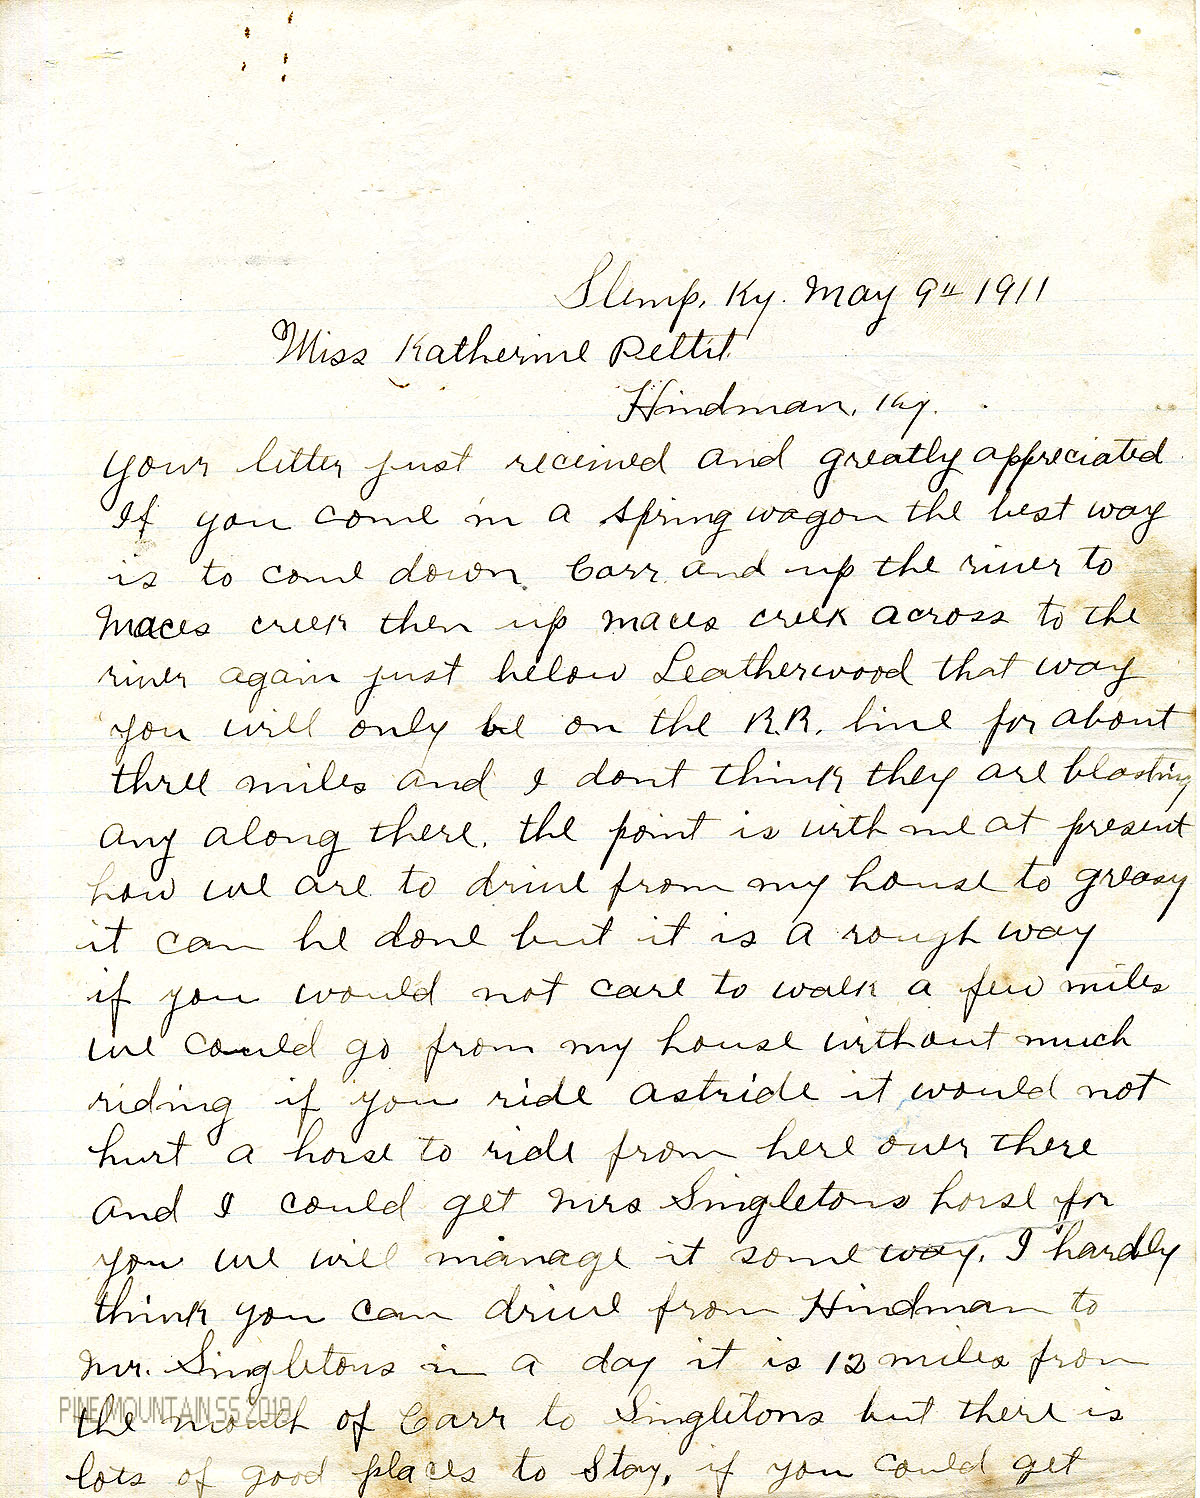 Slemp, Ky. May 9th 1911
Miss Katherine Pettit
Hindman, Ky.
Your letter just received and greatly appreciated
If you come in a spring wagon the best way
is to come down Carr and up the river to
Maces creek then up maces creek across to the
river again just below Leatherwood that way
you will only be on the R.R. line for about
three miles and I dont think they are blasting
any along there. the point is with me at present
how we are to drive from my house to greasy
it can be done but it is a rough way
if you would not care to walk a few miles
we could go from my house without much
riding if you ride astride it would not
hurt a horse to ride from here over there
and I could get Mrs Singletons horse for
you we will manage it some way. I hardly
think you can drive from Hindman to
Mr. Singletons in a day it is 12 miles from
the mouth of Carr to Singletons but there is
lots of good places to stay, if you could get
PINE MOUNTAIN SS 2019